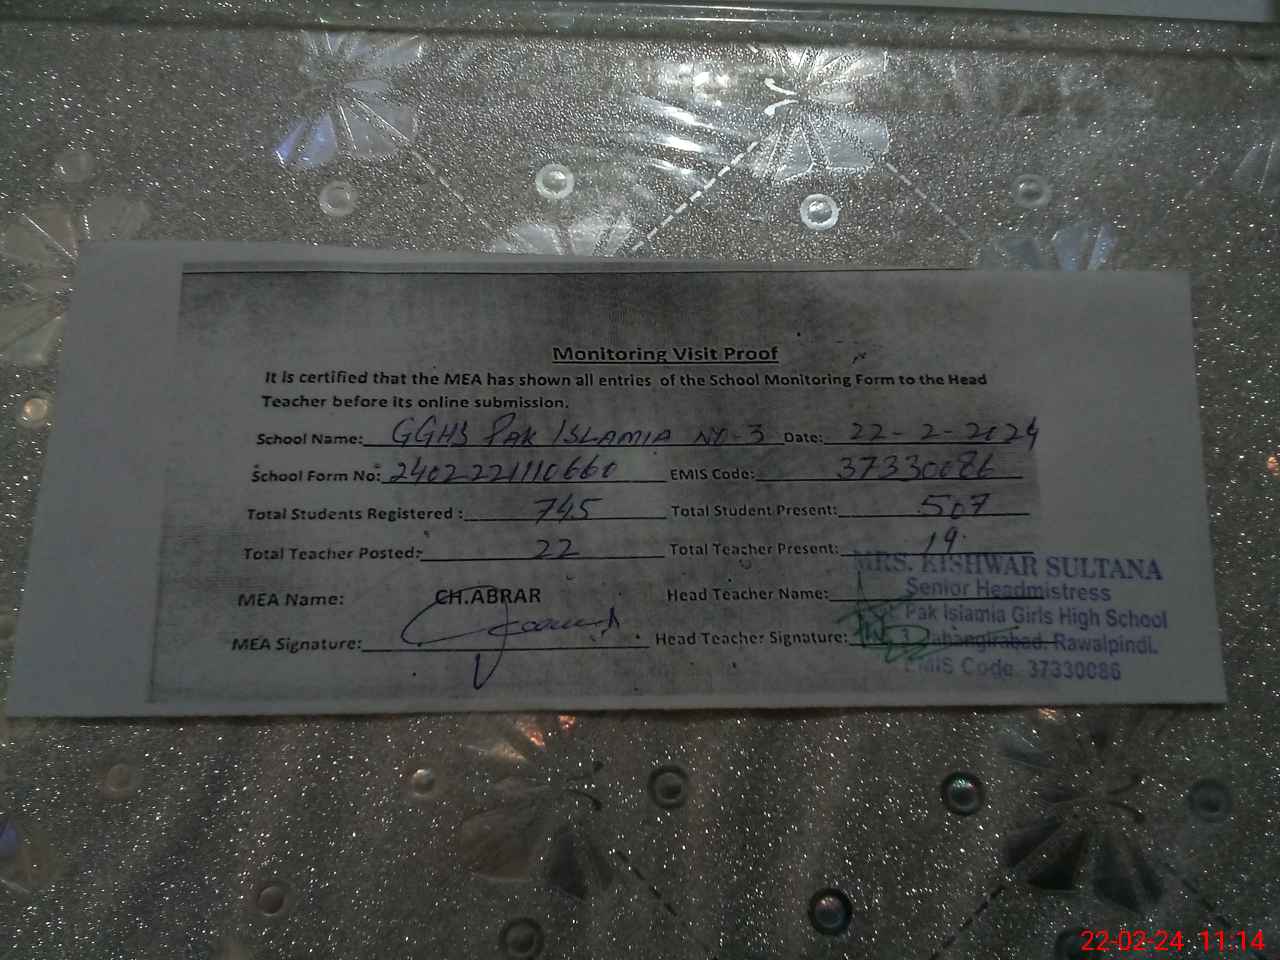 Monitoring Visit Proof
It is certified that the MEA has shown all entries of the School Monitoring Form to the Head
Teacher before its online submission.
School Name: GGHS PAK ISLAMIA NO-3 Date: 22-2-2024
School Form No: 2402221110660 EMIS Code: 37330086
Total Students Registered : 745 Total Student Present: 507
Total Teacher Posted: 22 Total Teacher Present: 19
MEA Name: CH.ABRAR Head Teacher Name:
MEA Signature: Head Teacher Signature:
MRS. KISHWAR SULTANA
Senior Headmistress
Pak Islamia Girls High School
Jahangirabad. Rawalpindi.
EMIS Code. 37330086
22-02-24 11:14